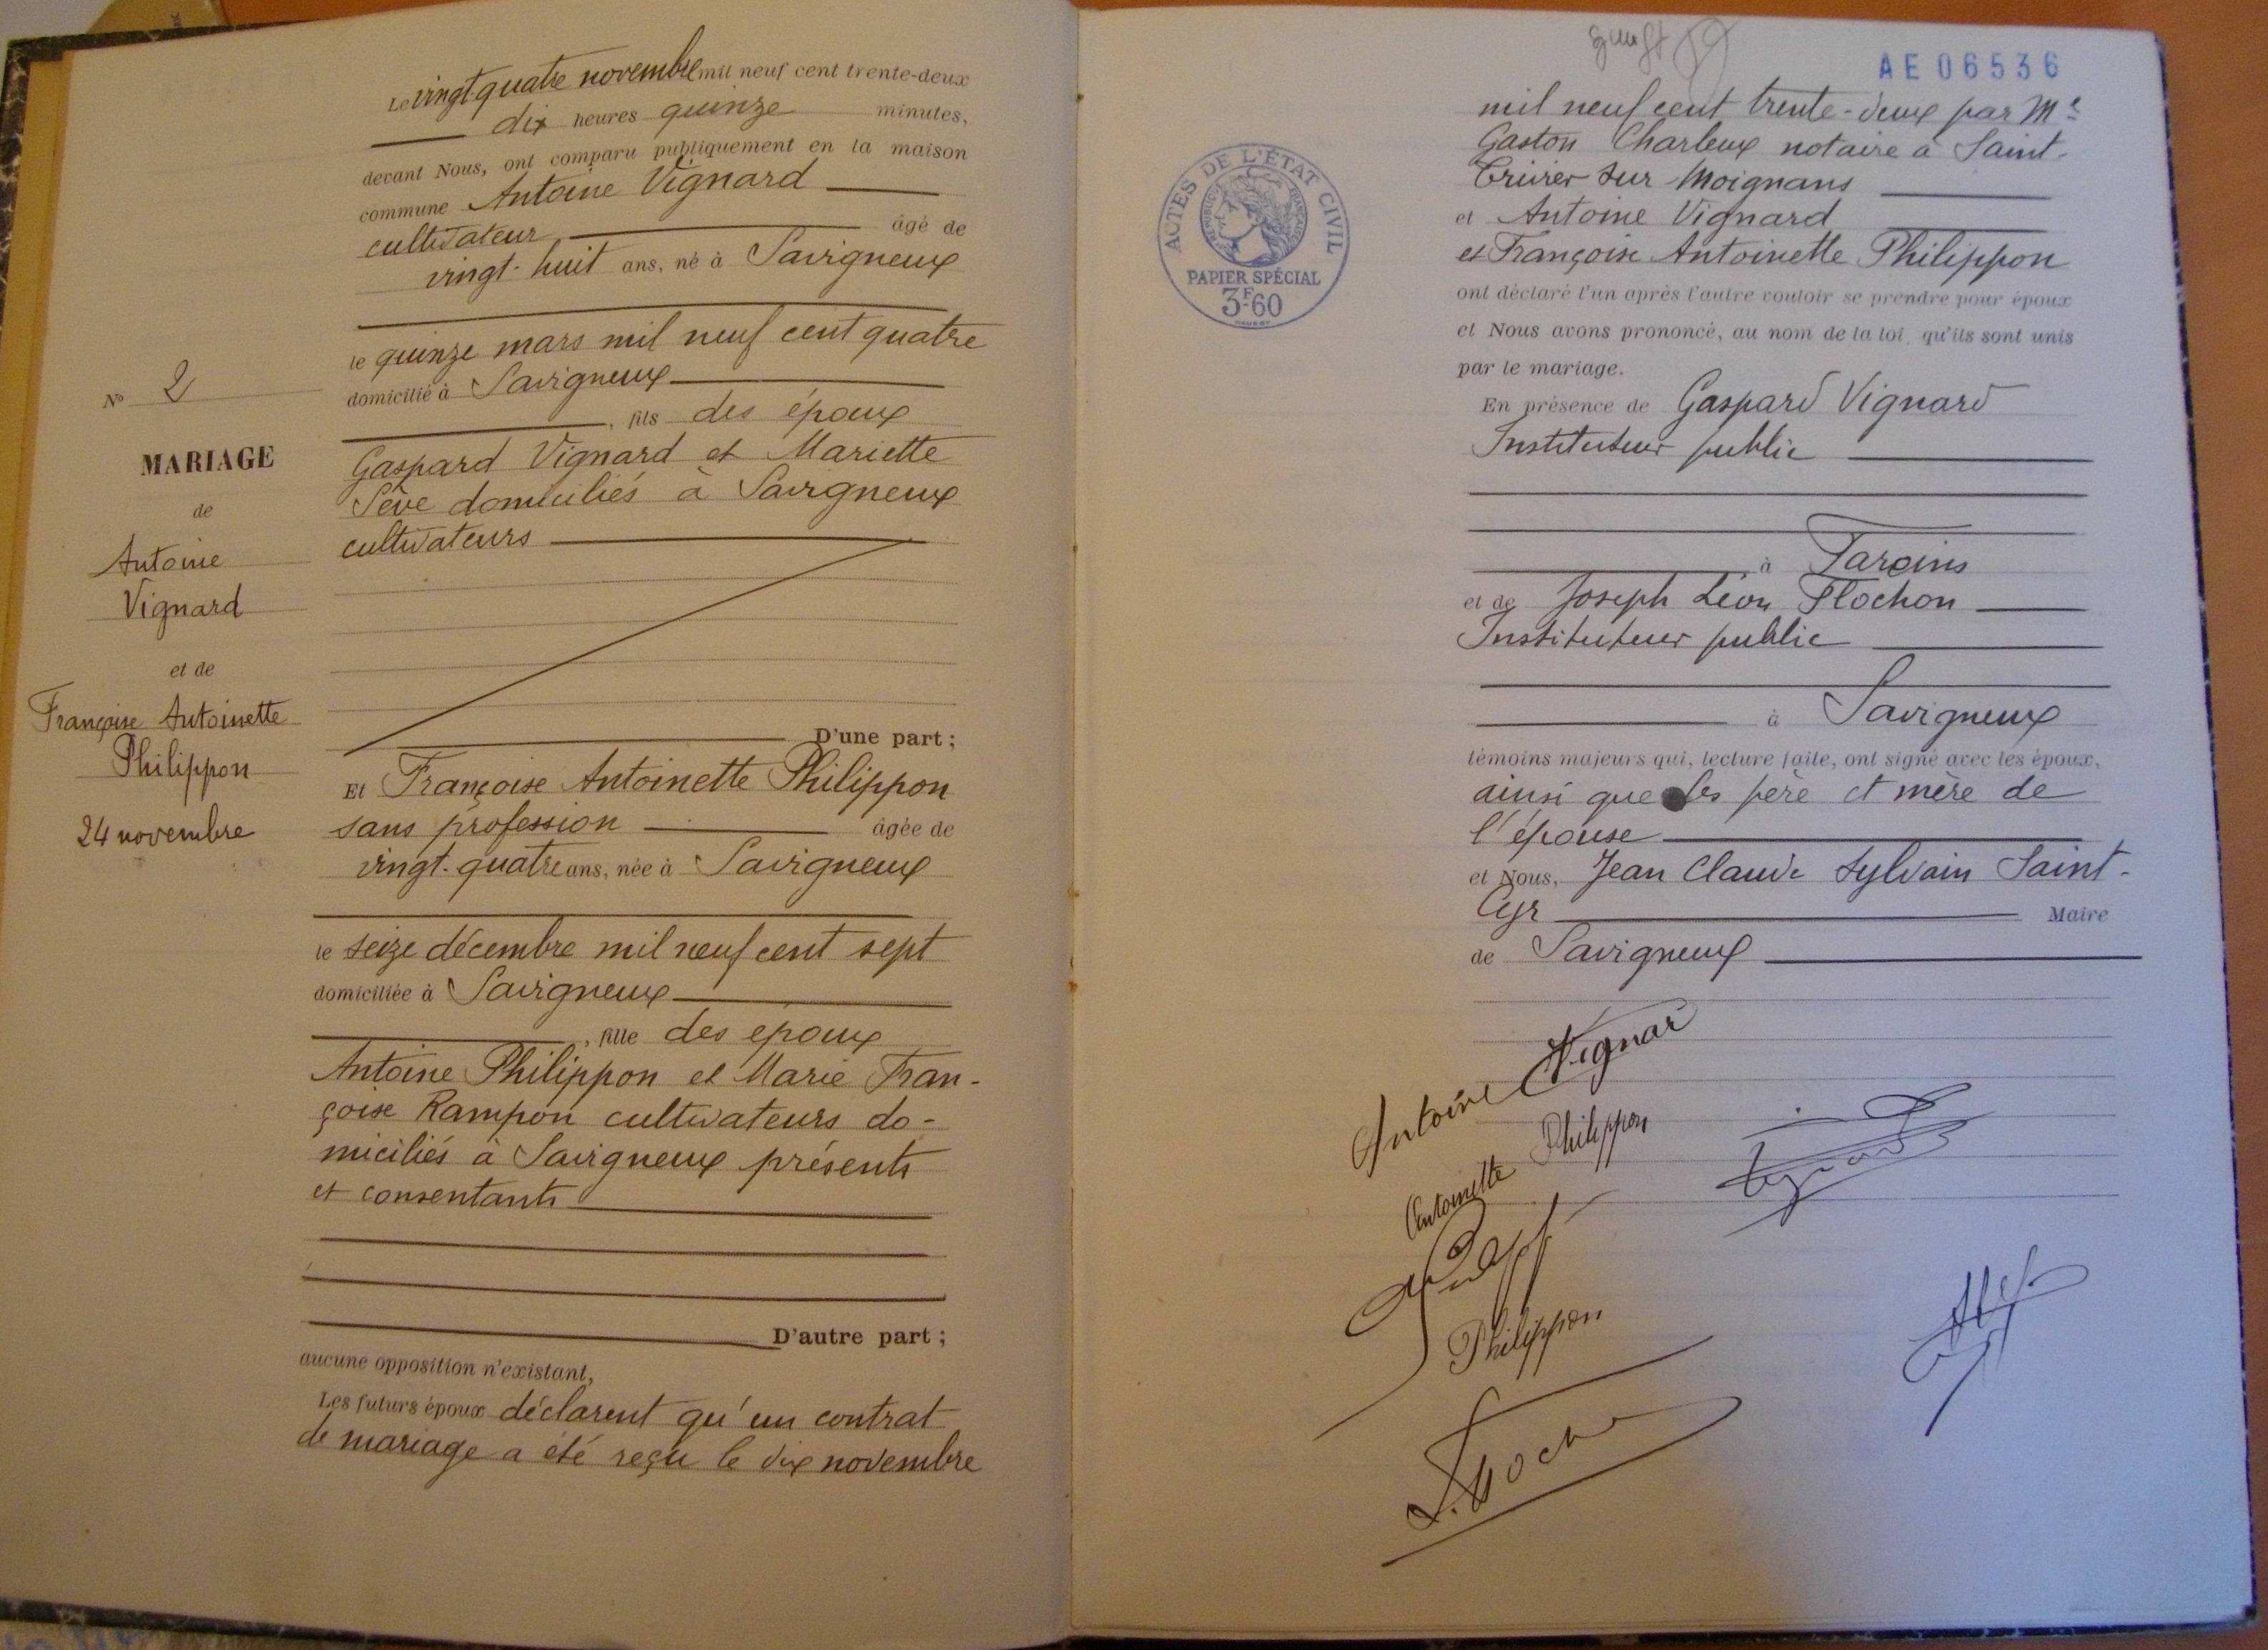 Le vingt-quatre novembre mil neuf cent trente-deux
dix heures quinze minutes,
devant Nous, ont comparu publiquement en la maison
commune Antoine Vignard
cultivateur âgé de
vingt-huit ans, né à Savigneux
le quinze mars mil neuf cent quatre
domicilié à Savigneux
, fils des époux
Gaspard Vignard et Mariette
Sève domiciliés à Savigneux
cultivateurs
D'une part ;
Et Françoise Antoinette Philippon
sans profession âgée de
vingt-quatre ans, née à Savigneux
le seize décembre mil neuf cent sept
domiciliée à Savigneux
, fille des époux
Antoine Philippon et Marie Fran-
çoise Rampon cultivateurs do-
miciliés à Savigneux présents
et consentants
D'autre part ;
aucune opposition n'existant,
Les futurs époux déclarent qu'un contrat
de mariage a été reçu le dix novembre
No 2
MARIAGE
de
Antoine
Vignard
et de
Françoise Antoinette
Philippon
24 novembre
AE 06536
ACTES DE L'ÉTAT CIVIL
RÉPUBLIQUE FRANÇAISE
PAPIER SPÉCIAL
3F60
mil neuf cent trente-deux par Me
Gaston Charleux notaire à Saint-
Trivier sur Moignans
et Antoine Vignard
et Françoise Antoinette Philippon
ont déclaré l'un après l'autre vouloir se prendre pour époux
et Nous avons prononcé, au nom de la loi, qu'ils sont unis
par le mariage.
En présence de Gaspard Vignard
Instituteur public
à Parcins
et de Joseph Léon Flochon
Instituteur public
à Savigneux
témoins majeurs qui, lecture faite, ont signé avec les époux,
ainsi que les père et mère de
l'épouse
et Nous, Jean Claude Sylvain Saint-
Cyr Maire
de Savigneux
Antoine Vignar
Antoinette Philippon
Philippon